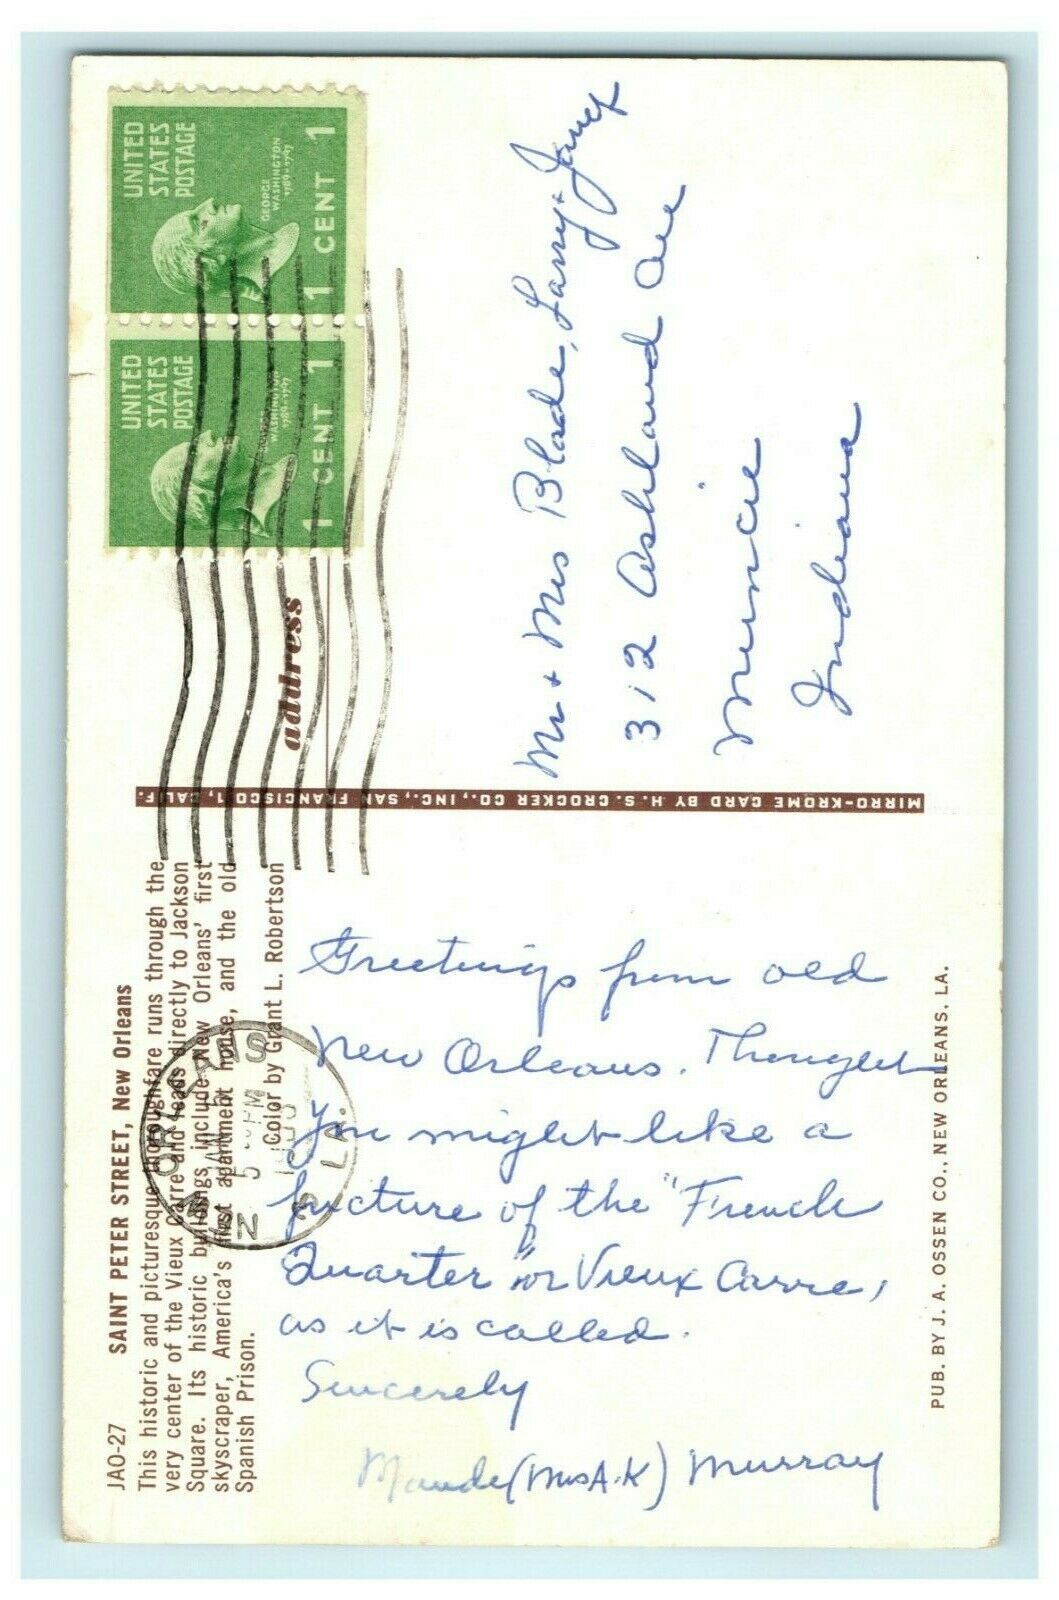 JAO-27 SAINT PETER STREET, New Orleans
This historic and picturesque thoroughfare runs through the
very center of the Vieux Carre and leads directly to Jackson
Square. Its historic buildings include New Orleans' first
skyscraper, America's first apartment house, and the old
Spanish Prison.
Color by Grant L. Robertson
NEW ORLEANS
JAN
5 PM
LA.
Greetings from old
New Orleans. Thought
you might like a
picture of the "French
Quarter" or Vieux Carre,
as it is called.
Sincerely
Maude (Mrs A.K) Murray
PUB. BY J. A. OSSEN CO., NEW ORLEANS, LA.
MIRRO-KROME CARD BY H. S. CROCKER CO., INC., SAN FRANCISCO 1, CALIF.
address
UNITED
STATES
POSTAGE
GEORGE
WASHINGTON
1789-1797
1 CENT 1
UNITED
STATES
POSTAGE
GEORGE
WASHINGTON
1789-1797
1 CENT 1
Mr + Mrs Blade, Larry + Janey
312 Ashland Ave
Muncie
Indiana